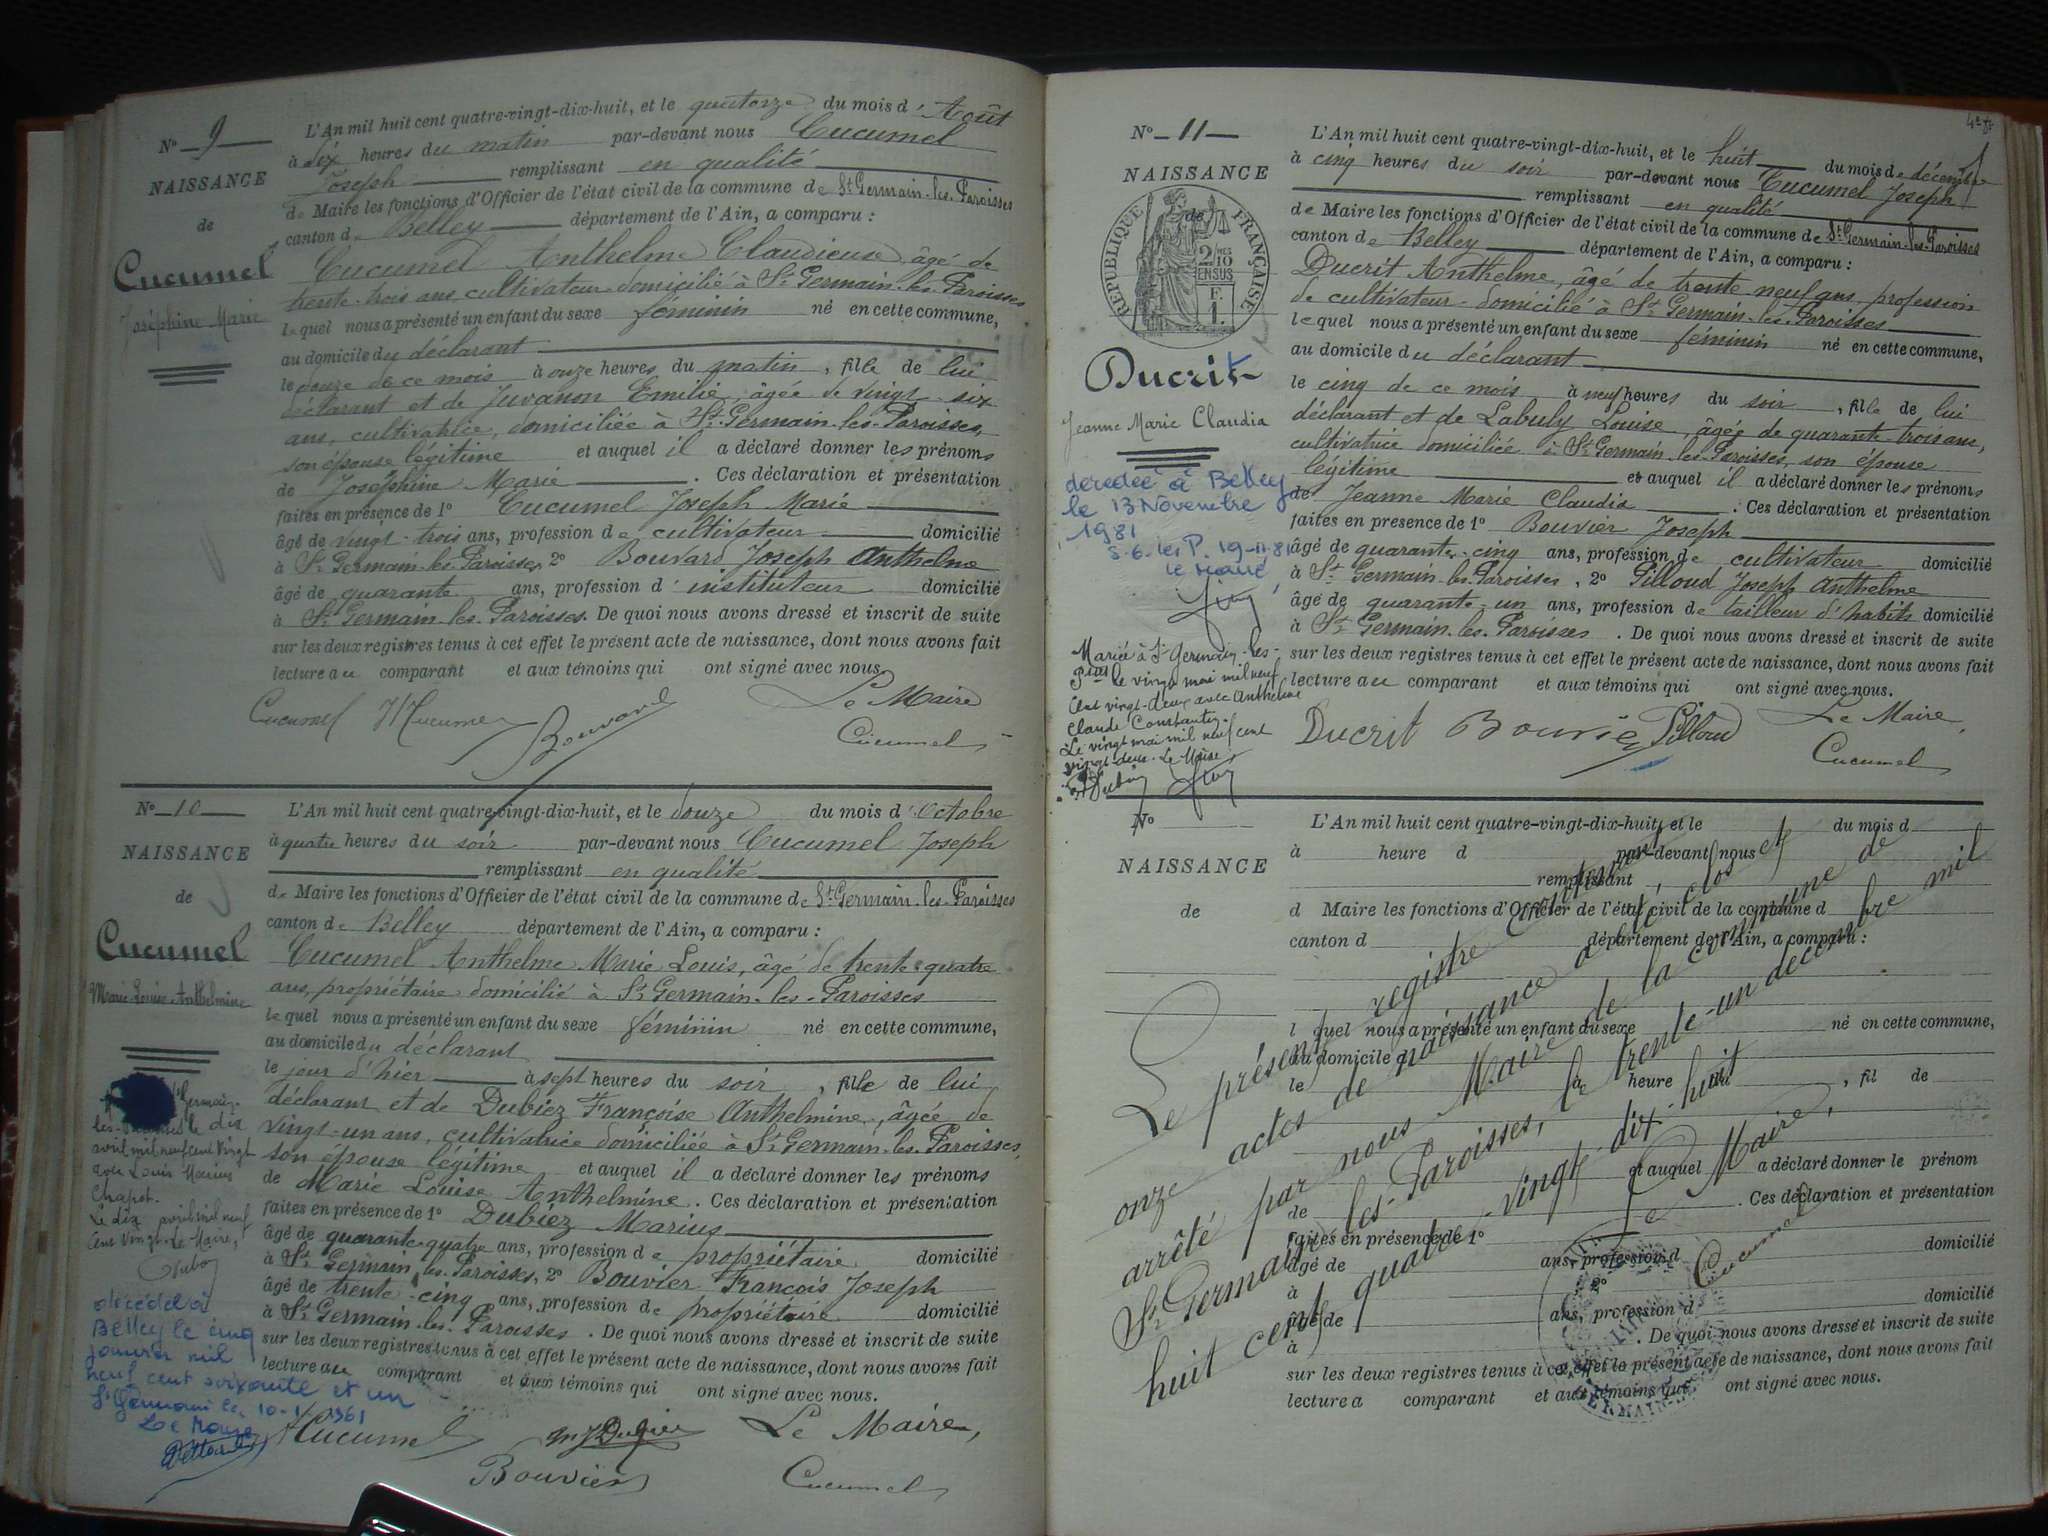 N° 9
NAISSANCE
de
Cucumel
Joséphine Marie
L'An mil huit cent quatre-vingt-dix-huit, et le quatorze du mois d'Août
à dix heures du matin par-devant nous Cucumel
Joseph remplissant en qualité
de Maire les fonctions d'Officier de l'état civil de la commune de St Germain-les-Paroisses
canton de Belley département de l'Ain, a comparu :
Cucumel Anthelme Claudieuse, âgé de
trente-trois ans, cultivateur domicilié à St Germain-les-Paroisses
lequel nous a présenté un enfant du sexe féminin né en cette commune,
au domicile du déclarant
le douze de ce mois à onze heures du matin, fille de lui
déclarant et de Juvanon Emilie, âgée de vingt-six
ans, cultivatrice, domiciliée à St Germain-les-Paroisses,
son épouse légitime et auquel il a déclaré donner les prénoms
de Joséphine Marie. Ces déclaration et présentation
faites en présence de 1° Cucumel Joseph Marie
âgé de vingt-trois ans, profession de cultivateur domicilié
à St Germain-les-Paroisses, 2° Bouvard Joseph Anthelme
âgé de quarante ans, profession d'instituteur domicilié
à St Germain-les-Paroisses. De quoi nous avons dressé et inscrit de suite
sur les deux registres tenus à cet effet le présent acte de naissance, dont nous avons fait
lecture au comparant et aux témoins qui ont signé avec nous.
Cucumel Cucumel Bouvard Le Maire
Cucumel
N° 10
NAISSANCE
de
Cucumel
Marie Louise Anthelmine
L'An mil huit cent quatre-vingt-dix-huit, et le douze du mois d'Octobre
à quatre heures du soir par-devant nous Cucumel Joseph
remplissant en qualité
de Maire les fonctions d'Officier de l'état civil de la commune de St Germain-les-Paroisses
canton de Belley département de l'Ain, a comparu :
Cucumel Anthelme Marie Louis, âgé de trente-quatre
ans, propriétaire domicilié à St Germain-les-Paroisses
lequel nous a présenté un enfant du sexe féminin né en cette commune,
au domicile du déclarant
le jour d'hier à sept heures du soir, fille de lui
déclarant et de Dubiez Françoise Anthelmine, âgée de
vingt-un ans, cultivatrice domiciliée à St Germain-les-Paroisses,
son épouse légitime et auquel il a déclaré donner les prénoms
de Marie Louise Anthelmine. Ces déclaration et présentation
faites en présence de 1° Dubiez Marius
âgé de quarante-quatre ans, profession de propriétaire domicilié
à St Germain-les-Paroisses, 2° Bouvier François Joseph
âgé de trente-cinq ans, profession de propriétaire domicilié
à St Germain-les-Paroisses. De quoi nous avons dressé et inscrit de suite
sur les deux registres tenus à cet effet le présent acte de naissance, dont nous avons fait
lecture au comparant et aux témoins qui ont signé avec nous.
Germain-
les- le dix
avril mil neuf cent vingt
avec Louis Marius
Chapot.
Le dix avril mil neuf
cent vingt. Le Maire,
décédée à
Belley le cinq
janvier mil
neuf cent soixante et un
St Germain le 10-1-1961
Le Maire
Cucumel Le Maire,
Bouvier Cucumel
N° 11
NAISSANCE
de
RÉPUBLIQUE FRANÇAISE
2/10 mes
EN SUS
F.
1.
Ducrit
Jeanne Marie Claudia
décédée à Belley
le 13 Novembre
1981
S.G. les P. 19-11-81
le Maire
Mariée à St Germain-les-
Pses le vingt mai mil neuf
cent vingt-deux avec Anthelme
Claude Constantin.
Le vingt mai mil neuf cent
vingt-deux. Le Maire
L'An mil huit cent quatre-vingt-dix-huit, et le huit du mois de décembre
à cinq heures du soir par-devant nous Cucumel Joseph
remplissant en qualité
de Maire les fonctions d'Officier de l'état civil de la commune de St Germain-les-Paroisses
canton de Belley département de l'Ain, a comparu :
Ducrit Anthelme, âgé de trente neuf ans, profession
de cultivateur domicilié à St Germain-les-Paroisses
lequel nous a présenté un enfant du sexe féminin né en cette commune,
au domicile du déclarant
le cinq de ce mois à neuf heures du soir, fille de lui
déclarant et de Labuly Louise, âgée de quarante-trois ans,
cultivatrice domiciliée à St Germain-les-Paroisses, son épouse
légitime et auquel il a déclaré donner les prénoms
de Jeanne Marie Claudia. Ces déclaration et présentation
faites en présence de 1° Bouvier Joseph
âgé de quarante-cinq ans, profession de cultivateur domicilié
à St Germain-les-Paroisses, 2° Pilloud Joseph Anthelme
âgé de quarante-un ans, profession de tailleur d'habits domicilié
à St Germain-les-Paroisses. De quoi nous avons dressé et inscrit de suite
sur les deux registres tenus à cet effet le présent acte de naissance, dont nous avons fait
lecture au comparant et aux témoins qui ont signé avec nous.
Ducrit Bouvier Pilloud Le Maire,
Cucumel
N°
NAISSANCE
de
L'An mil huit cent quatre-vingt-dix-huit, et le du mois d
à heure d par-devant nous
remplissant
d Maire les fonctions d'Officier de l'état civil de la commune d
canton d département de l'Ain, a comparu :
l quel nous a présenté un enfant du sexe né en cette commune,
au domicile d
le à heure d, fil de
et auquel a déclaré donner le prénom
de. Ces déclaration et présentation
faites en présence de 1°
âgé de ans, profession d domicilié
à 2°
âgé de ans, profession d domicilié
à. De quoi nous avons dressé et inscrit de suite
sur les deux registres tenus à cet effet le présent acte de naissance, dont nous avons fait
lecture a comparant et aux témoins qui ont signé avec nous.
Le présent registre contenant
onze actes de naissance a été clos et
arrêté par nous Maire de la commune de
St Germain-les-Paroisses, le trente-un décembre mil
huit cent quatre-vingt-dix-huit
Le Maire,
Cucumel